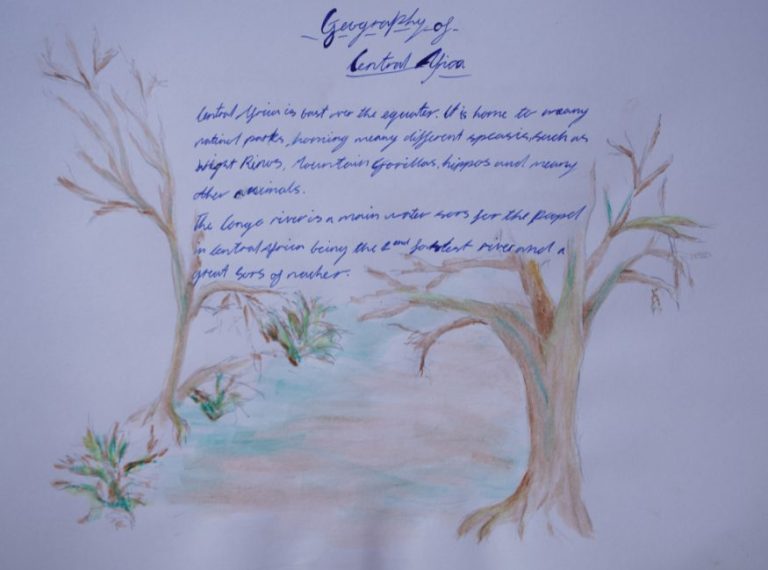 Geography of
Central Africa
Central Africa is bast over the equater. It is home to meany
natinal parks, homing meany different speasis, such as
Wight Rinos, Mountain Gorillas, hippos and meany
other animals.
The Congo river is a main water sors for the pepol
in Central Africa being the 2nd fastest river and a
great sors of nacher.